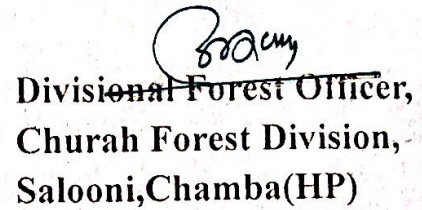 Divisional Forest Officer,
Churah Forest Division,
Salooni,Chamba(HP)